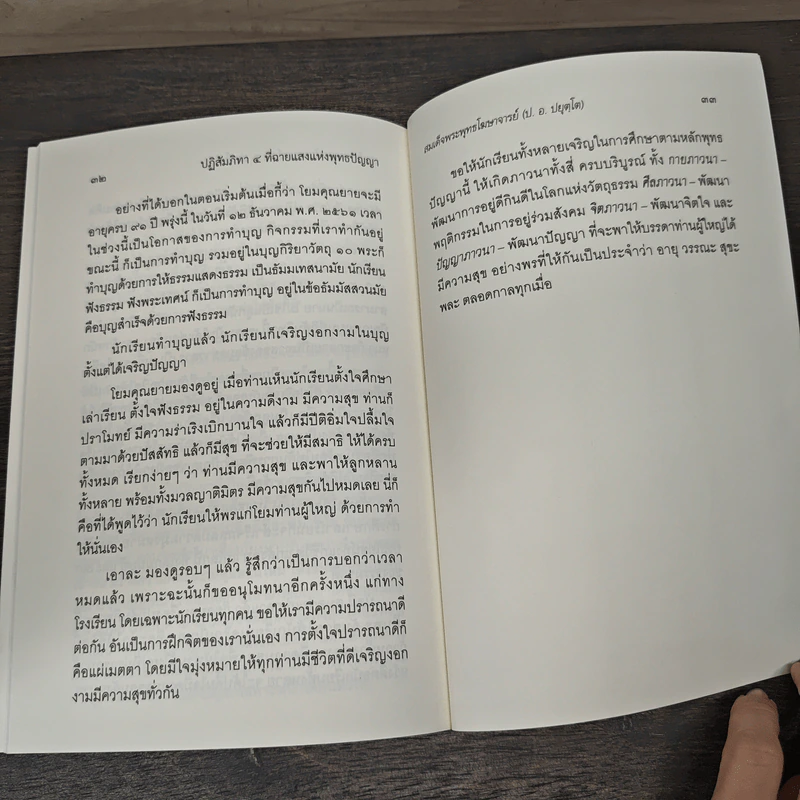 ๓๒
ปฏิสัมภิทา ๔ ที่ฉายแสงแห่งพุทธปัญญา
อย่างที่ได้บอกในตอนเริ่มต้นเมื่อกี้ว่า โยมคุณยายจะมี
อายุครบ ๙๑ ปี พรุ่งนี้ ในวันที่ ๑๒ ธันวาคม พ.ศ. ๒๕๖๑ เวลา
ในช่วงนี้เป็นโอกาสของการทำบุญ กิจกรรมที่เราทำกันอยู่
ขณะนี้ ก็เป็นการทำบุญ รวมอยู่ในบุญกิริยาวัตถุ ๑๐ พระก็
ทำบุญด้วยการให้ธรรมแสดงธรรม เป็นธัมมเทสนามัย นักเรียน
ฟังธรรม ฟังพระเทศน์ ก็เป็นการทำบุญ อยู่ในข้อธัมมัสสวนมัย
คือบุญสำเร็จด้วยการฟังธรรม
นักเรียนทำบุญแล้ว นักเรียนก็เจริญงอกงามในบุญ
ตั้งแต่ได้เจริญปัญญา
โยมคุณยายมองดูอยู่ เมื่อท่านเห็นนักเรียนตั้งใจศึกษา
เล่าเรียน ตั้งใจฟังธรรม อยู่ในความดีงาม มีความสุข ท่านก็
ปราโมทย์ มีความร่าเริงเบิกบานใจ แล้วก็มีปีติอิ่มใจปลื้มใจ
ตามมาด้วยปัสสัทธิ แล้วก็มีสุข ที่จะช่วยให้มีสมาธิ ให้ได้ครบ
ทั้งหมด เรียกง่ายๆ ว่า ท่านมีความสุข และพาให้ลูกหลาน
ทั้งหลาย พร้อมทั้งมวลญาติมิตร มีความสุขกันไปหมดเลย นี่ก็
คือที่ได้พูดไว้ว่า นักเรียนให้พรแก่โยมท่านผู้ใหญ่ ด้วยการทำ
ให้นั่นเอง
เอาละ มองดูรอบๆ แล้ว รู้สึกว่าเป็นการบอกว่าเวลา
หมดแล้ว เพราะฉะนั้นก็ขออนุโมทนาอีกครั้งหนึ่ง แก่ทาง
โรงเรียน โดยเฉพาะนักเรียนทุกคน ขอให้เรามีความปรารถนาดี
ต่อกัน อันเป็นการฝึกจิตของเรานั่นเอง การตั้งใจปรารถนาดีก็
คือแผ่เมตตา โดยมีใจมุ่งหมายให้ทุกท่านมีชีวิตที่ดีเจริญงอก
งามมีความสุขทั่วกัน
สมเด็จพระพุทธโฆษาจารย์ (ป. อ. ปยุตฺโต)
๓๓
ขอให้นักเรียนทั้งหลายเจริญในการศึกษาตามหลักพุทธ
ปัญญานี้ ให้เกิดภาวนาทั้งสี่ ครบบริบูรณ์ ทั้ง กายภาวนา -
พัฒนาการอยู่ดีกินดีในโลกแห่งวัตถุธรรม ศีลภาวนา – พัฒนา
พฤติกรรมในการอยู่ร่วมสังคม จิตภาวนา – พัฒนาจิตใจ และ
ปัญญาภาวนา – พัฒนาปัญญา ที่จะพาให้บรรดาท่านผู้ใหญ่ได้
มีความสุข อย่างพรที่ให้กันเป็นประจำว่า อายุ วรรณะ สุขะ
พละ ตลอดกาลทุกเมื่อ